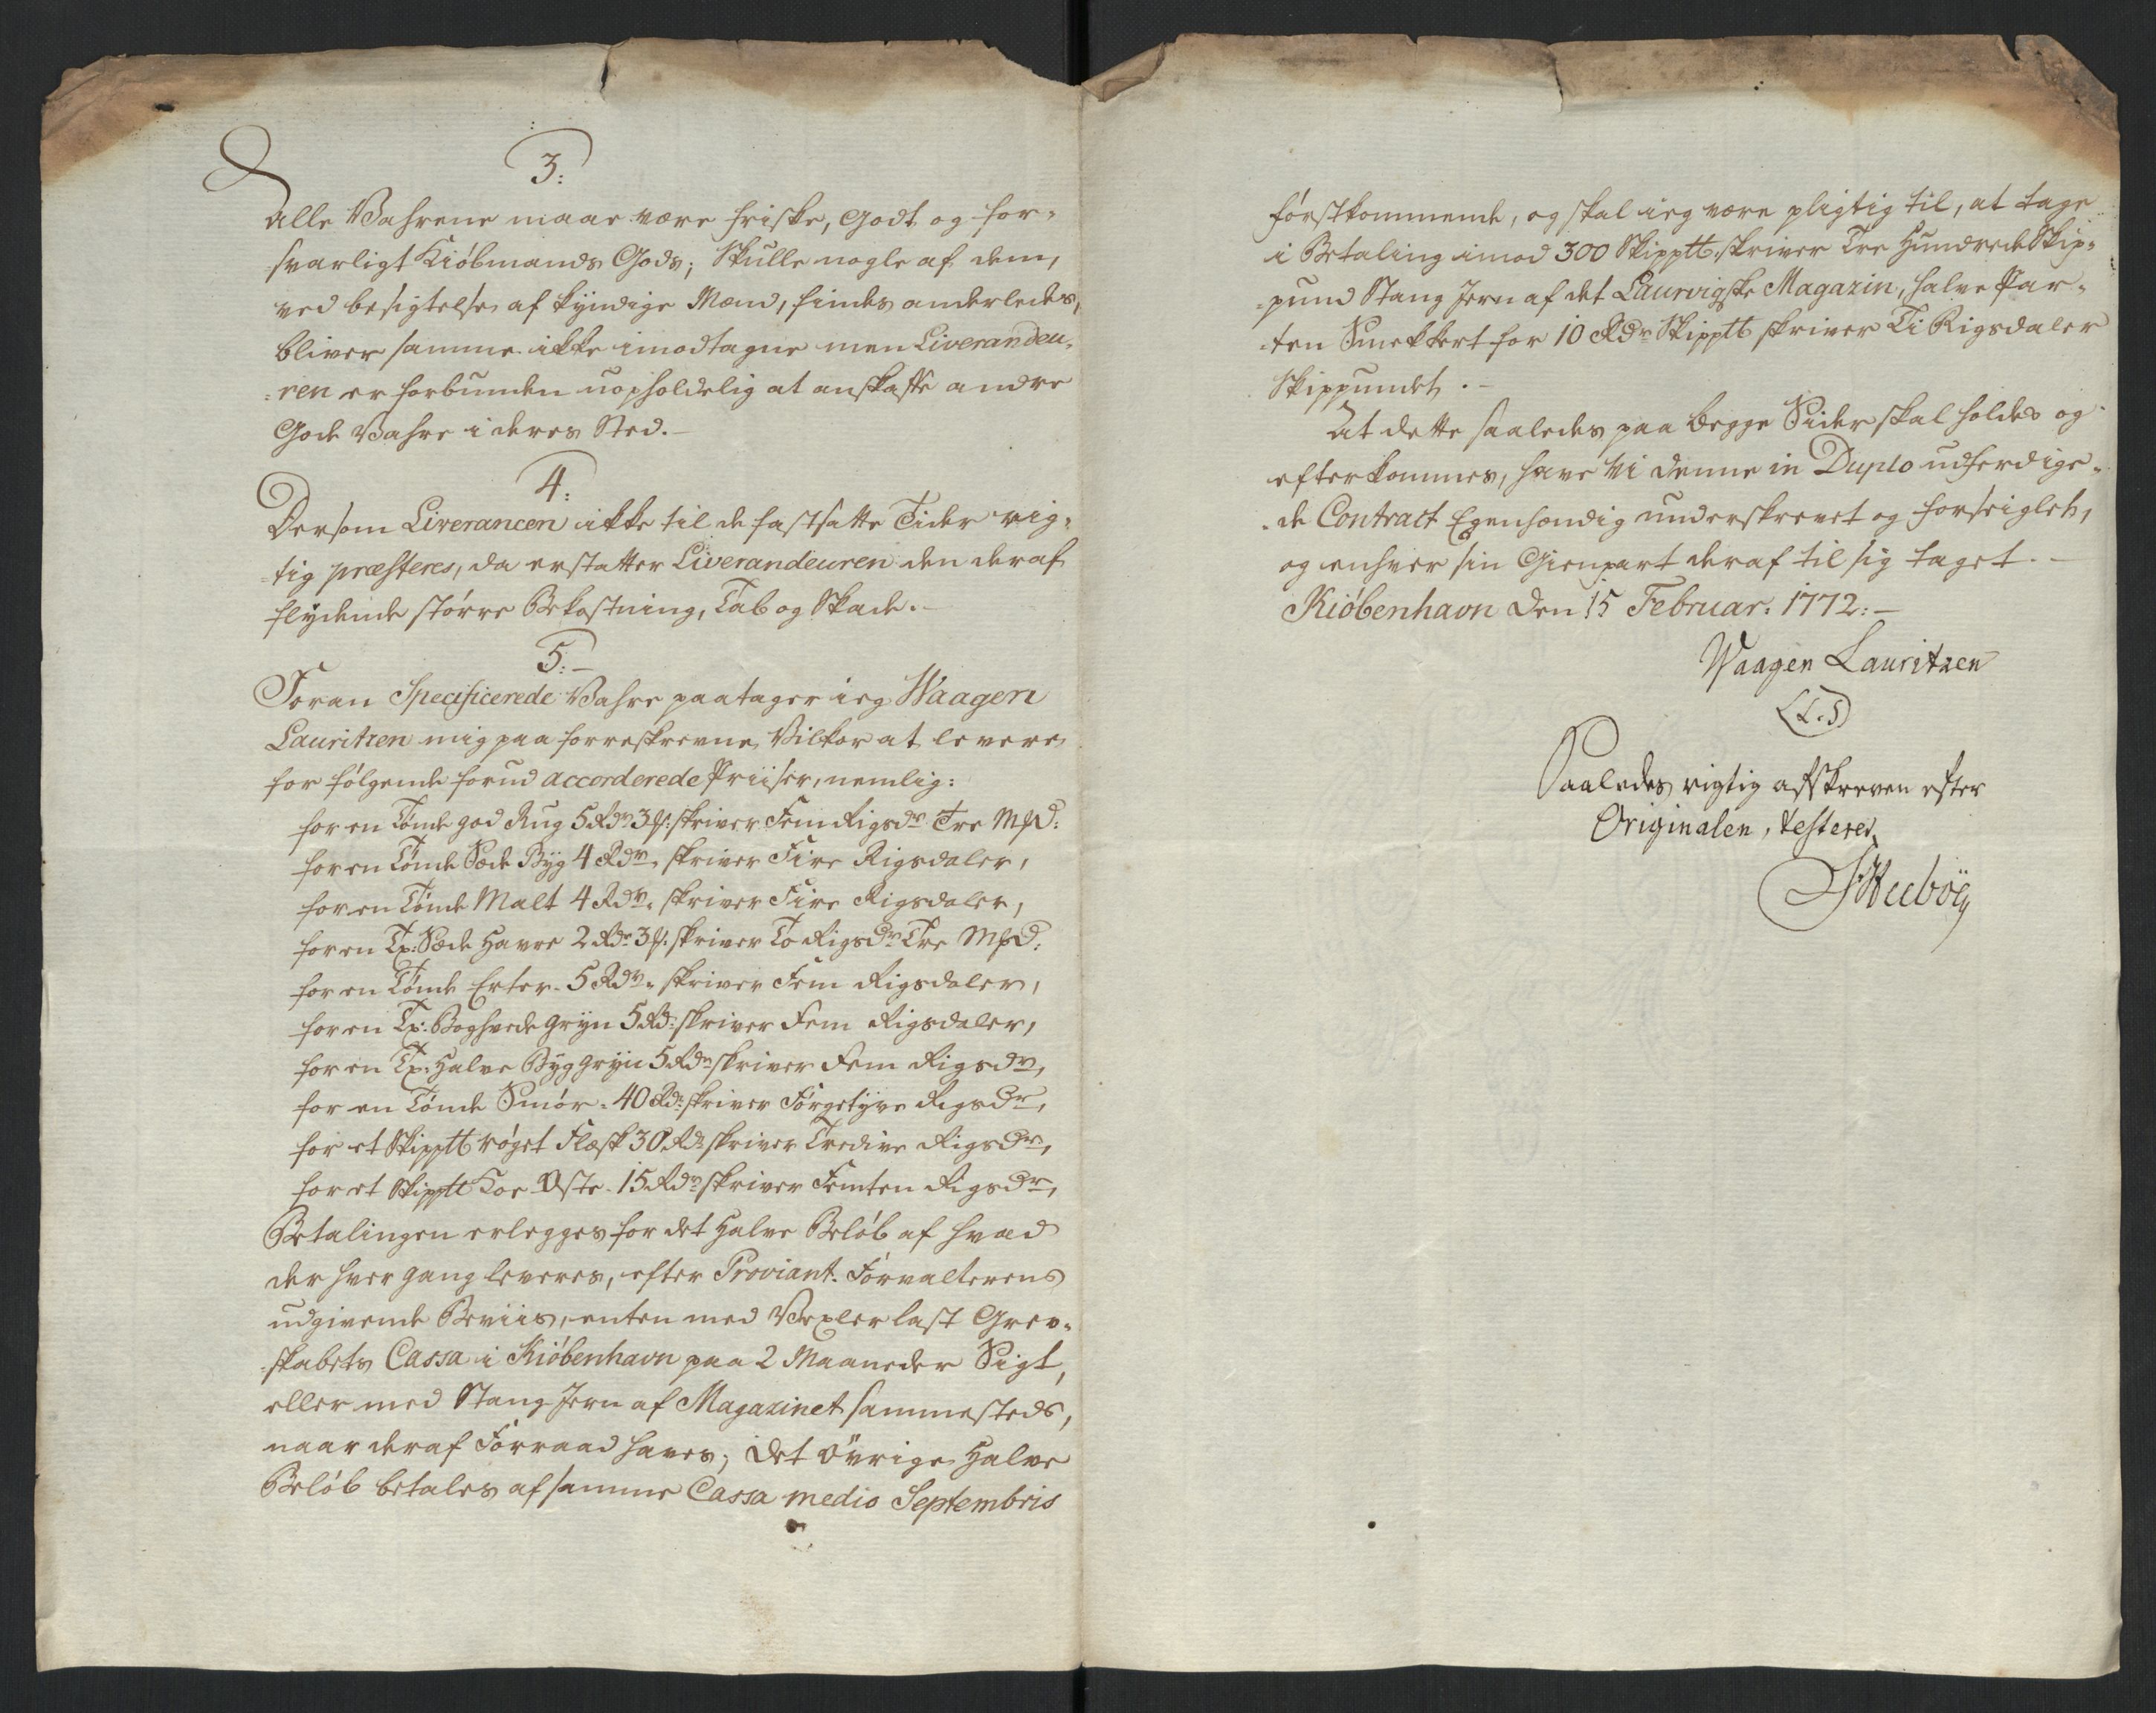 3:
Alle Vahrene maae være friske, Godt og for-
svarligt Kiöbmands Gods; Skulle nogle af dem,
ved besigtelse af kyndige Mænd, findes anderledes,
bliver samme ikke imodtagne men Liverandeu-
-ren er forbunden uopholdelig at anskaffe andre
Gode Vahre i deres Sted.-
4:
Dersom Liverancen ikke til de fastsatte Tider rig-
-tig præsteres, da erstatter Liverandeuren den deraf
flydende större Bekostning, Tab og Skade.-
5:-
Foran Specificerede Vahre paatager ieg Waagen
Lauritzen mig paa forreskrevne Vilkor at levere
for fölgende forud accorderede Priiser, nemlig:
for en Tönde god Rug 5 Rdr 3 ꝟ: skriver Fem Rigsdr Tre Mꝟd:
for en Tönde Sæde Byg 4 Rdr. skriver Fire Rigsdaler,
for en Tönde Malt 4 Rdr. skriver Fire Rigsdaler,
for en Tr: Sæde Havre 2 Rdr 3 ꝟ: skriver To Rigsdr Tre Mꝟd:
for en Tönde Erter. 5 Rdr. skriver Fem Rigsdaler,
for en Tr: Boghvede gryn 5 Rd: skriver Fem Rigsdaler,
for en Tr: Halve Byg gryn 5 Rdr skriver Fem Rigsdr,
for en Tönde Smör. 40 Rdr: skriver Förgetyve Rigsdr,
for et Skipp℔ röget Flæsk 30 Rdr skriver Tredive Rigsdr,
for et Skipp℔ Koe Oste. 15 Rdr skriver Femten Rigsdr,
Betalingen erlegges for det Halve Belöb af hvad
der hver gang leveres, efter Proviant-Forvalterens
udgivende Beviis, enten med Vexler last Grev-
-skabets Cassa i Kiöbenhavn paa 2 Maaneder Sigt,
eller med Stang Jern af Magazinet sammesteds,
naar deraf Forraad haves; Det övrige Halve
Belöb betales af samme Cassa medio Septembris
förstkommende, og skal ieg være pligtig til, at tage
i Betaling imod 300 Skipp℔. skriver Tre Hundrede Skip-
-pund Stang Jern af det Laurvigske Magazin, halve Par-
-ten Smekkert for 10 Rdr Skipp℔ skriver Ti Rigsdaler
Skippundet.-
At dette saaledes paa begge Sider skal holdes og
efterkommes, have vi denne in Duplo udferdige-
-de Contract Egenhændig underskrevet og forseiglet,
og enhver sin Gienpart deraf til sig taget.-
Kiöbenhavn den 15 Februar. 1772:-
Waagen Lauritzen
(L.S)
Saaledes rigtig afskreven efter
Originalen, testerer